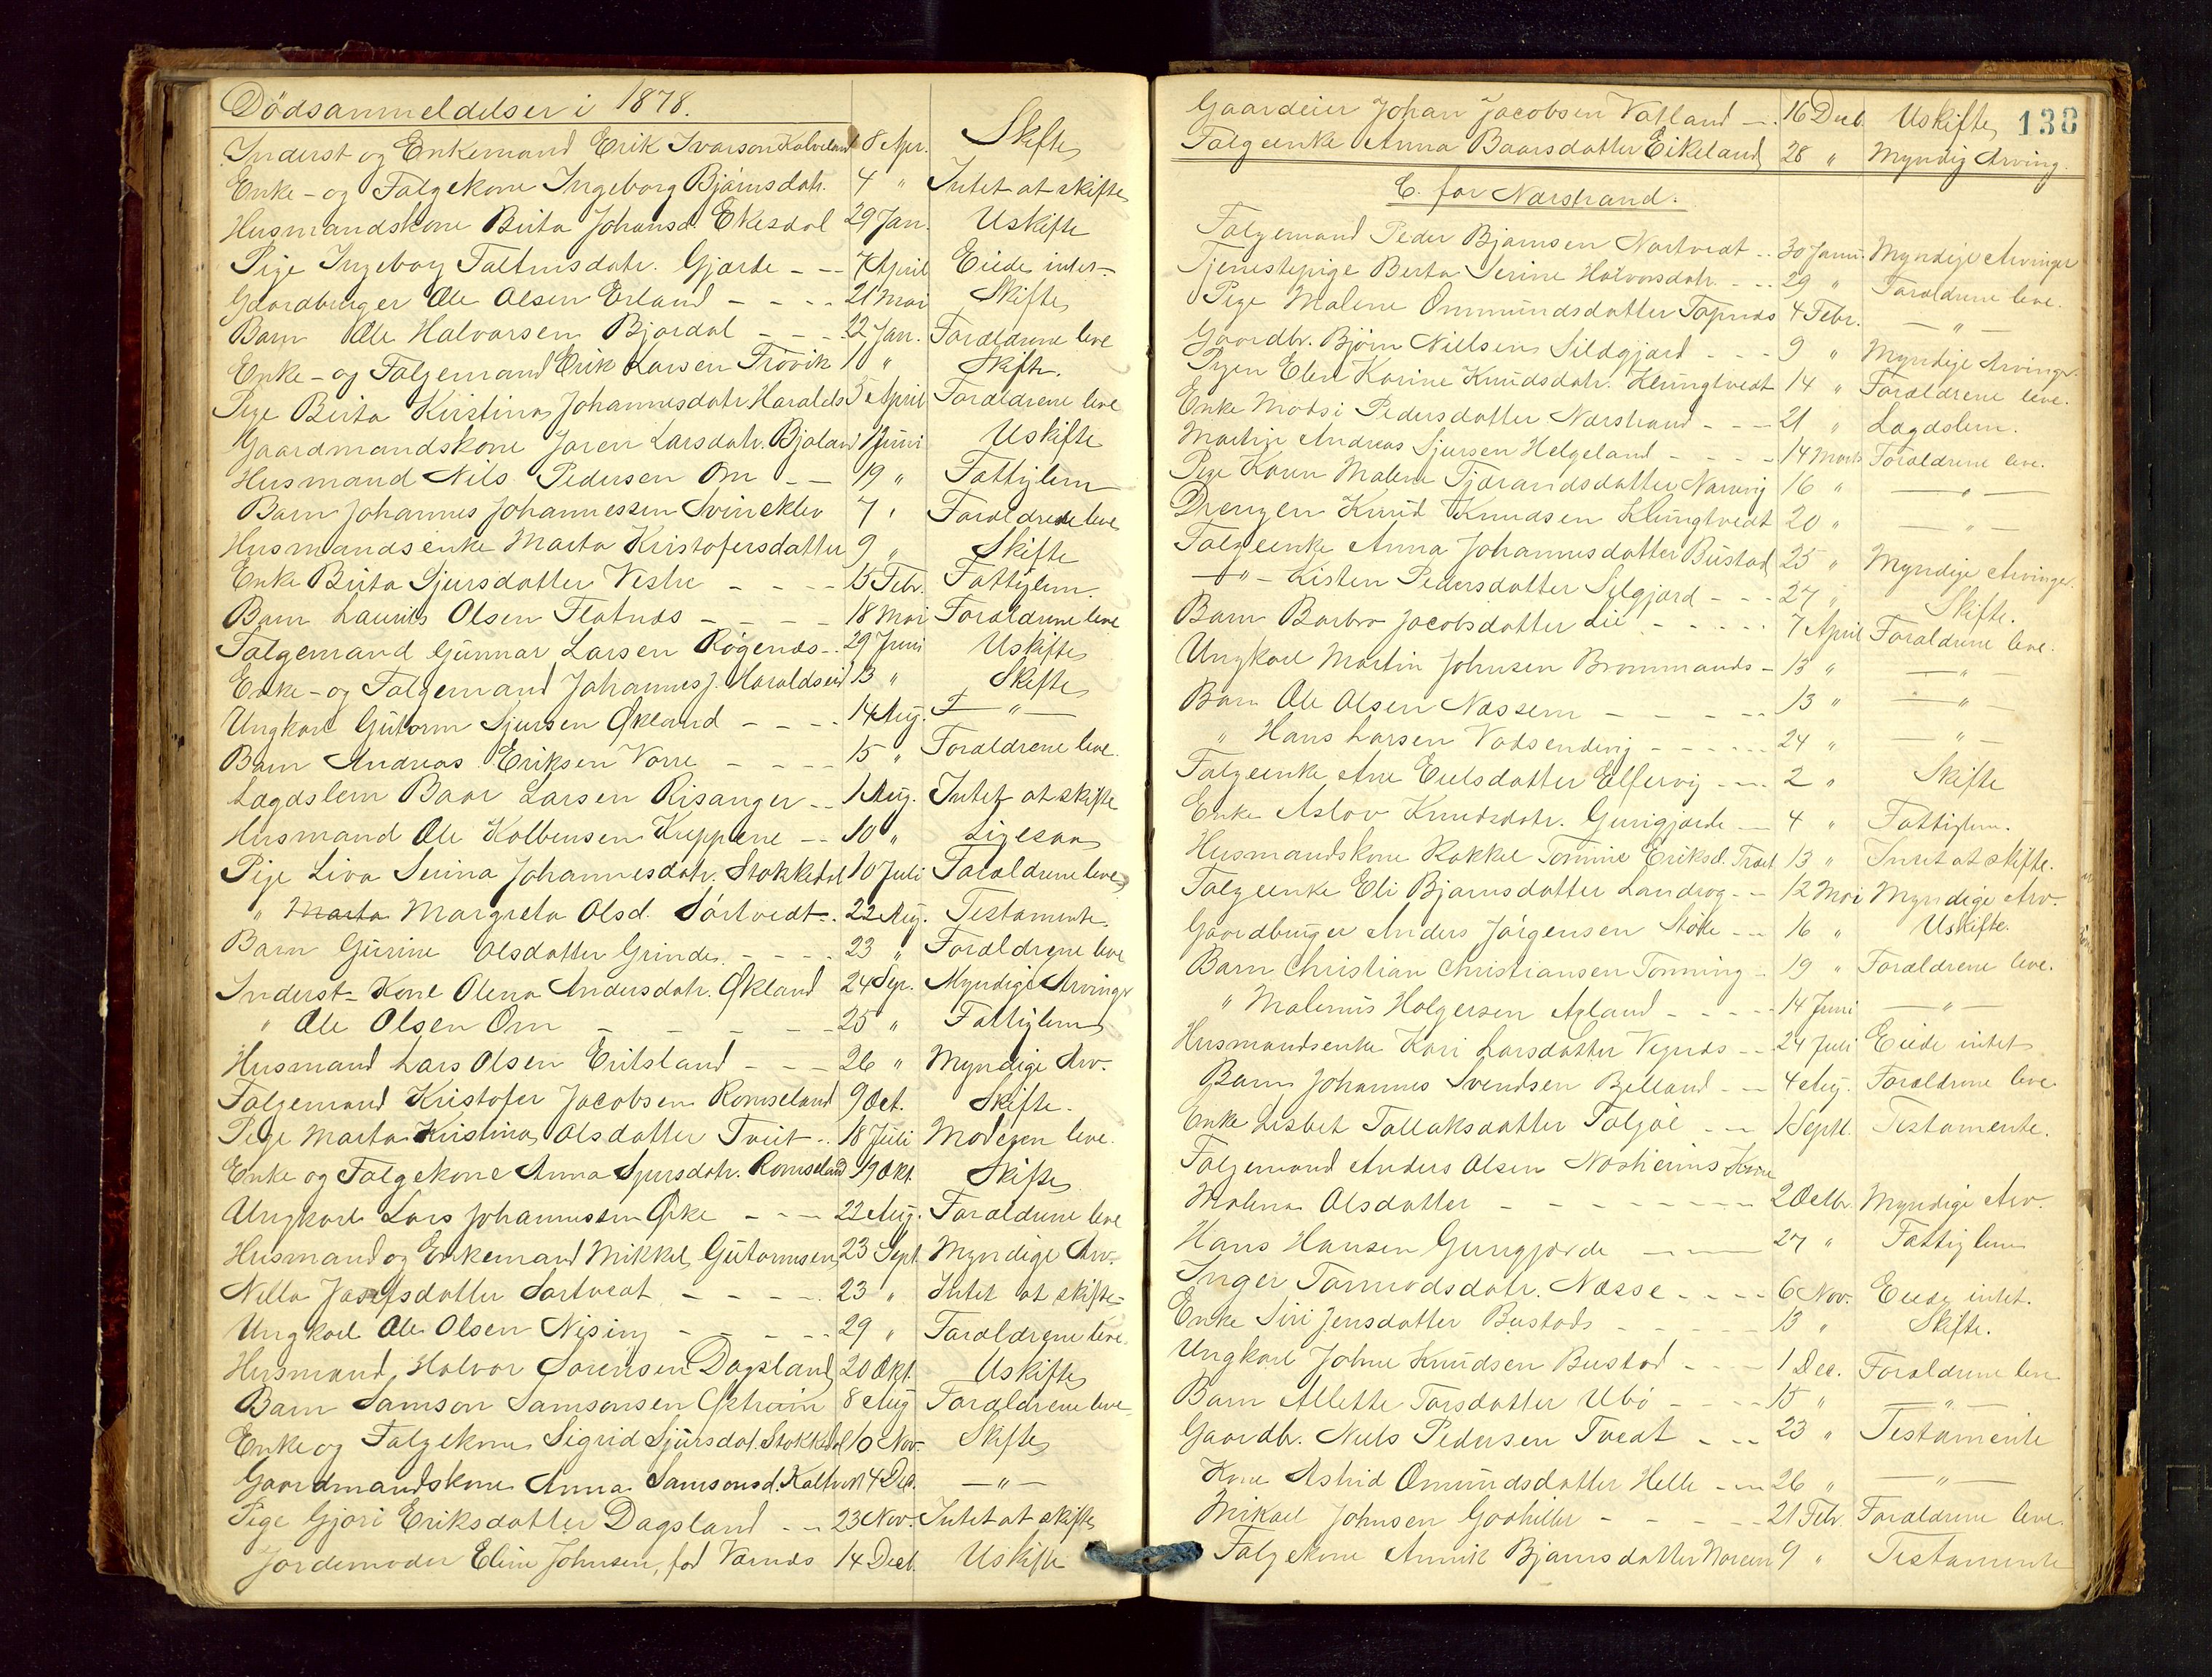 Dödsanmeldelser i 1878.
Inderst og Enkemand Erik Ivarson Kalveland 8 Apr. Skifte
Enke- og Følgekone Ingeborg Bjørnsdatr. 4 " Intet at skifte
Husmandskone Berta Johansd. Ekesdal 29 Jan. Uskifte
Pige Ingeborg Gjærde - - 7 April Eiede intet
Gaardbruger Ole Olsen Erland - - - 21 Mai Skifte
Barn Ole Halvorsen Bjordal - - - 22 Jan. Forældrene leve
Enke- og Følgemand Erik Larsen Trövik 10 " Skifte.
Pige Berta Kristina Johannesdatr. Haralds 5 April Forældrene leve
Gaardmandskone Joren Larsdatr. Bjoland 1 Juni Uskifte
Husmand Nils Pedersen Om - - 19 " Fattiglem
Barn Johannes Johannessen Svineklev 7 " Forældrene leve
Husmandsenke Marta Kristofersdatter 9 " Skifte
Enke Berta Sjursdatter Vestre - - - 15 Febr. Fattiglem.
Barn Laurits Olsen Flatnes - - - - 18 Mai Forældrene leve
Følgemand Gunnar Larsen Røgenes - 29 Juni Uskifte
Enke- og Følgemand Johannes J. Haraldseid 13 " Skifte
Ungkarl Gutorm Sjursen Økland - - - 14 Aug. - " -
Barn Andreas Eriksen Vorre - - - - 15 " Forældrene leve.
Lægdslem Baar Larsen Risanger - - 1 Aug. Intet at skifte
Husmand Ole Kolbensen Kuppene - - 10 " Ligesaa
Pige Liva Serina Johannesdatr. Stokkedal 10 Juli Forældrene leve
" Marta Margreta Olsd. Sörtvedt - 22 Aug. Testamente.
Barn Gurine Olsdatter Grinde - - - - 23 " Forældrene leve
Inderst-Kone Olena Andersdatr. Økland 24 Sep. Myndige Arvinger
" Ole Olsen Om - - - - - 25 " Fattiglem
Husmand Lars Olsen Eritsland - - - 26 " Myndige Arv.
Følgemand Kristofer Jacobsen Romseland 9 Oct. Skifte.
Pige Marta Kristina Olsdatter Tveit - 18 Juli Moderen leve.
Enke og Følgekone Anna Sjursdatr. Romseland 19 Okt. Skifte
Ungkarl Lars Johannessen Øke - - - 22 Aug. Forældrene leve
Husmand og Enkemand Mikkel Gutormsen 23 Sept. Myndige Arv.
Nella Josefsdatter Sørtvedt - - - - 23 " Intet at skifte
Ungkarl Ole Olsen Nising - - - - 29 " Forældrene leve.
Husmand Halvor Sørensen Dagsland 20 Okt. Uskifte
Barn Samson Samsonsen 8 Aug Forældrene leve
Enke og Følgekone Sigrid Sjursdat. Stokkedal 10 Nov. Skifte
Gaardmandskone Anna Samsonsd. 4 Dec. - " -
Pige Gjöri Eriksdatter Dagsland - - 23 Nov. Intet at skifte
Jordemoder Eline Johnsen, fød Varnes 14 Decb. Uskifte
138
Gaardeier Johan Jacobsen Vatland - . 16 Decb. Uskifte
Følgeenke Anna Baarsdatter Eikeland 28 " Myndig Arving.
C. for Nærstrand.
Følgemand Peder Bjørnsen Nortvedt - - 30 Janu. Myndige Arvinger
Tjenestepige Berta Serine Halvorsdatr. - - - 29 " Forældrene leve.
Pige Malene Ommundsdatter 4 Febr. - " -
Gaardbr. Björn Nielsen Sildgjærd - - - 9 " Myndige Arvinger.
Pigen Elen Karine Knudsdatr. Klungtvedt 14 " Forældrene leve.
Enke Madsi Pedersdatter Nærstrand - - - 21 " Lægdslem.
Martin Andreas Sjursen Helgeland - - - - 14 Marts Forældrene leve.
Pige Karen Malene Tjærandsdatter Narvig 16 " - " -
Drengen Knud Knudsen Klungtvedt 20 " - " -
Følgeenke Anna Johannesdatter Bustad 25 " Myndige Arvinger.
- " - Kisten Pedersdatter Silgjærd - - - 27 " Skifte.
Barn Barbro Jacobsdatter Lie - - - - - 7 April Forældrene leve.
Ungkarl Martin Johnsen Brommands - 13 " - " -
Barn Ole Olsen Næssem - - - - - 13 " - " -
" Hans Larsen Vadsendvig - - - - - 24 " - " -
Følgeenke Ane Eielsdatter Elfervig - - - 2 " Skifte
Enke Aslov Knudsdatr. Gunigjærde - - 4 " Fattiglem.
Husmandskone Rakkel Tomine Eriksd. Træet 13 " Intet at skifte.
Følgeenke Eli Bjørnsdatter Landrog - - 12 Mai Myndige Arv.
Gaardbruger Anders Jörgensen Stöle - - 16 " Uskifte.
Barn Christian Christiansen Tonning - 19 " Forældrene leve.
" Malenus Holgersen Aland - - - - 14 Juni - " -
Husmandsenke Kari Larsdatter Vignes - - 24 Juli Eiede intet
Barn Johannes Svendsen Bælland - - 4 Aug. Forældrene leve
Enke Lisbet Tollaksdatter Taljøe - - 1 Septb. Testamente.
Følgemand Anders Olsen Kone
Malena Olsdatter - - - - - - - - 2 Octbr. Myndige Arv.
Hans Hansen Gungjørde - - - 27 " Fattiglem
Inger Tormodsdatr. Næsse - - - - 6 Nov. Eiede intet.
Enke Siri Jensdatter Bustads - - - - 13 " Skifte.
Ungkarl Johne Knudsen Bustad - - - - 1 Dec. Forældrene leve
Barn Allette Torsdatter Ubö - - - - 15 " - " -
Gaardbr. Niels Pedersen Tvedt - - - 23 " Testamente
Kone Astrid Omundsdatter Helle - - - 26 " - " -
Mikael Johnsen - - - - - 21 Febr. Forældrene leve.
Følgekone Annik Bjørnsdatter 9 " Testamente